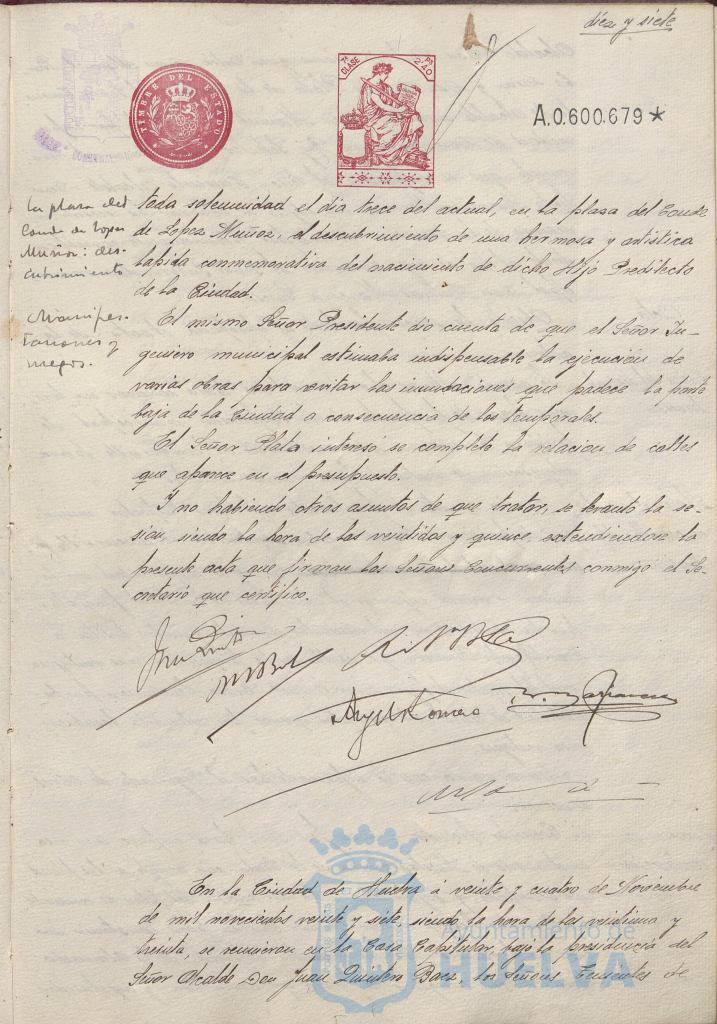 diez y siete
TIMBRE DEL ESTADO
7ª CLASE
PS 2'40
A.0.600.679*
toda solemnidad el dia trece del actual, en la plaza del Conde
de Lopez Muñoz, el descubrimiento de una hermosa y artistica
lapida conmemorativa del nacimiento de dicho Hijo Predilecto
de la Ciudad.
En plaza del
Conde de Lopez
Muñoz: des-
cubrimiento
El mismo Señor Presidente dio cuenta de que el Señor In-
geniero municipal estimaba indispensable la ejecucion de
varias obras para evitar las inundaciones que padece la parte
baja de la Ciudad a consecuencia de los temporales.
Manifes-
taciones y
ruegos.
El Señor Plata intereso se complete la relacion de calles
que aparece en el presupuesto.
Y no habiendo otros asuntos de que tratar, se levantó la se-
sion, siendo la hora de las veintidos y quince, extendiendose la
presente acta que firman los Señores Concurrentes conmigo el Se-
cretario que certifico.
Angel Romero
En la Ciudad de Huelva á veinte y cuatro de Noviembre
de mil novecientos veinte y siete, siendo la hora de las veintiuna y
treinta, se reunieron en la Casa Capitular, bajo la presidencia del
Señor Alcalde Don Juan Quintero Baez, los Señores Tenientes de
Ayuntamiento de
HUELVA